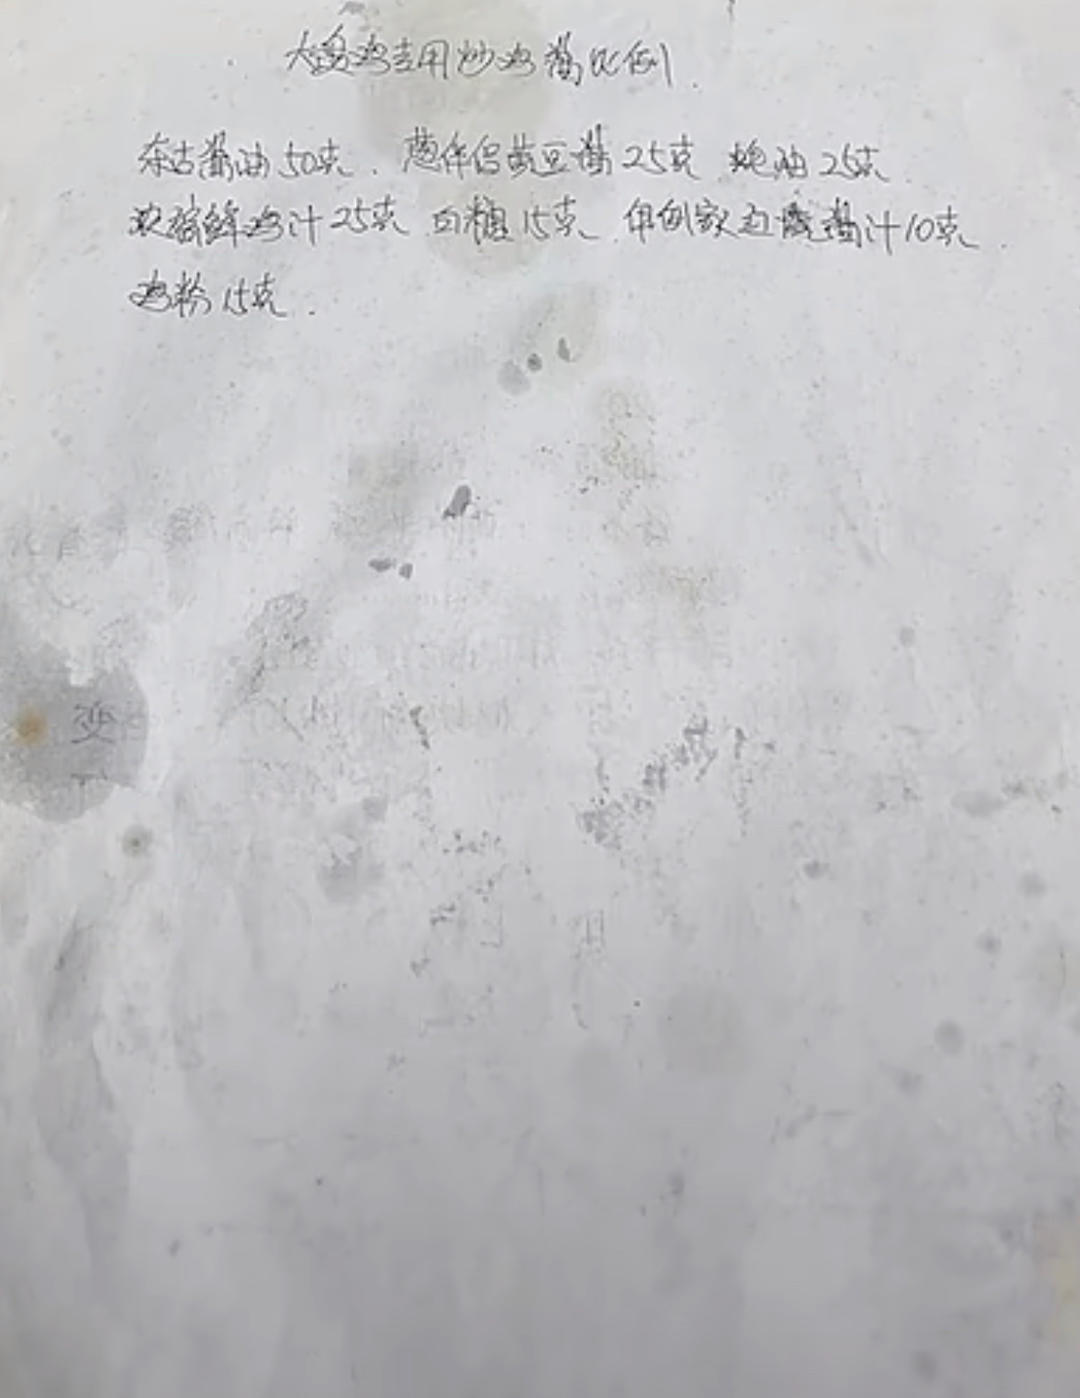 大盘鸡专用炒鸡酱比例.
东古酱油50克. 葱伴侣黄豆酱25克 蚝油25克
浓缩鲜鸡汁25克 白糖15克. 伊例家 酱汁10克.
鸡粉15克.
变